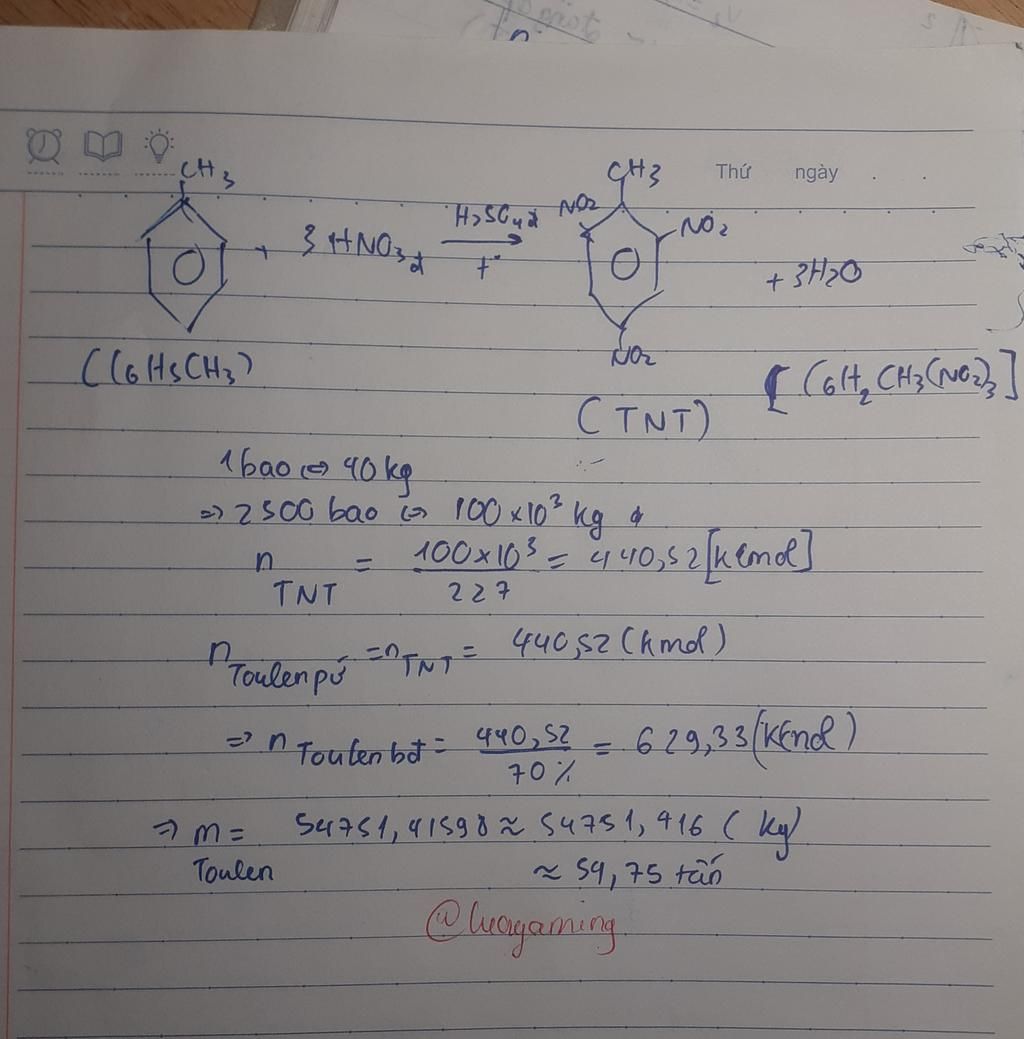 Thứ ngày
CH3 CH3
NO2 NO2
+ 3 HNO3đ H2SO4đ t° + 3H2O
NO2
(C6H5CH3) [C6H2CH3(NO2)3]
(TNT)
1 bao ⇔ 40 kg
⇒ 2500 bao ⇔ 100×10³ kg
n TNT = 100×10³ / 227 = 440,52 [kmol]
n Toulen pứ = n TNT = 440,52 (kmol)
⇒ n Toulen bđ = 440,52 / 70% = 629,33 (kmol)
⇒ m Toulen = 54751,41598 ≈ 54751,416 (kg)
≈ 54,75 tấn